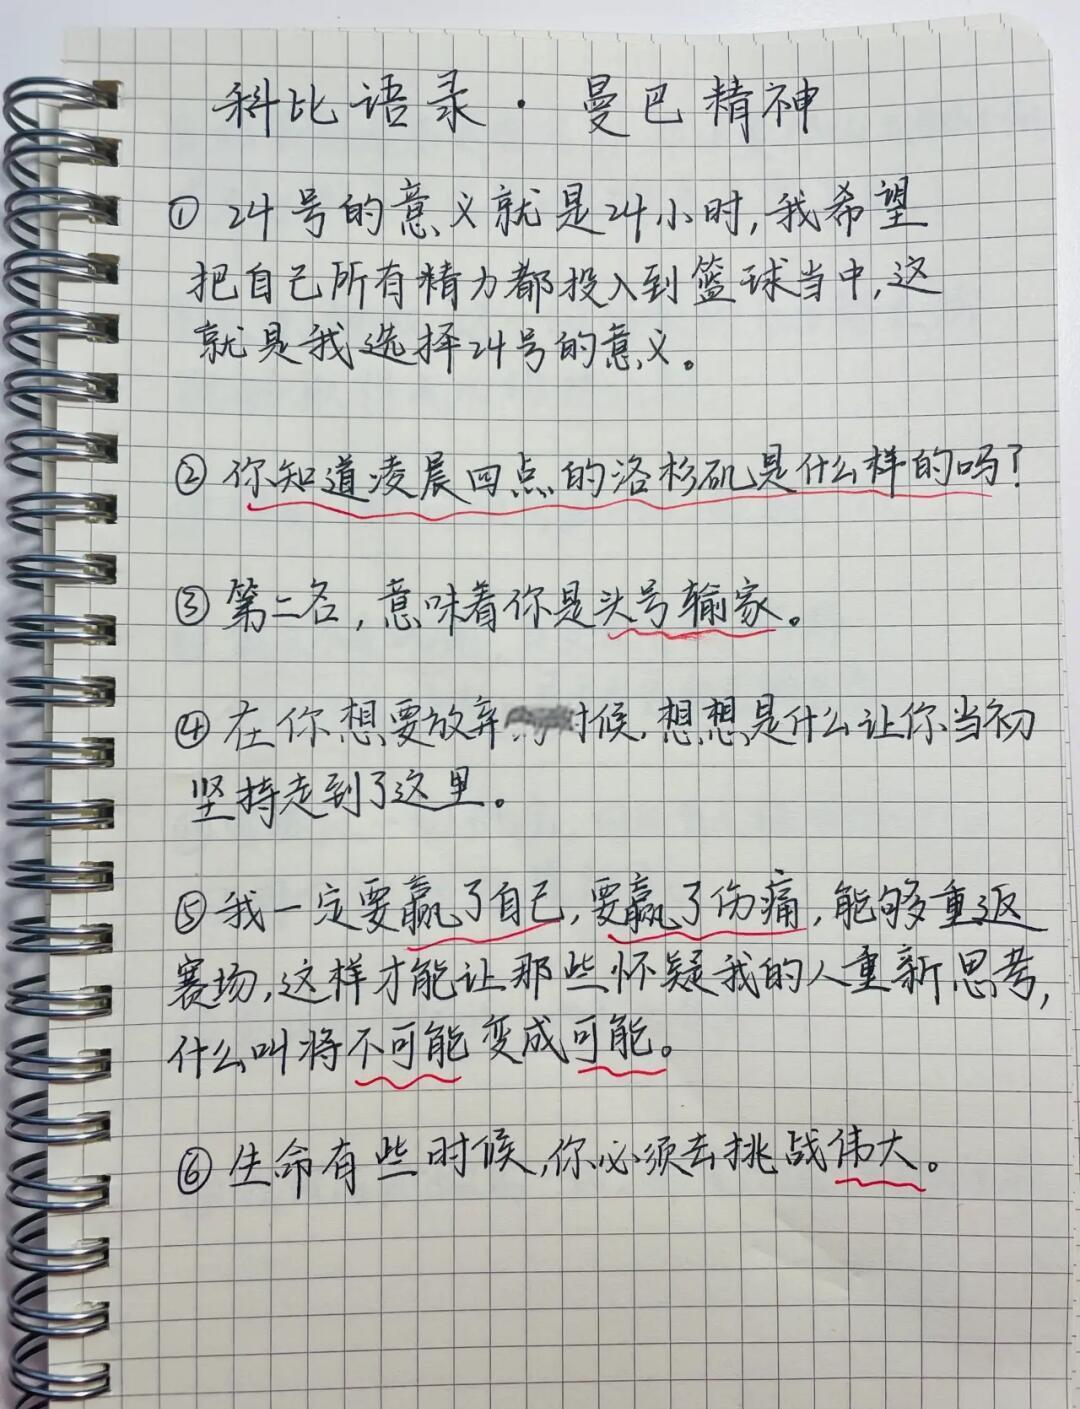 科比语录·曼巴精神
① 24号的意义就是24小时,我希望
把自己所有精力都投入到篮球当中,这
就是我选择24号的意义。
② 你知道凌晨四点的洛杉矶是什么样的吗?
③ 第二名,意味着你是头号输家。
④ 在你想要放弃时候,想想是什么让你当初
坚持走到了这里。
⑤ 我一定要赢了自己,要赢了伤痛,能够重返
赛场,这样才能让那些怀疑我的人重新思考,
什么叫将不可能变成可能。
⑥ 生命有些时候,你必须去挑战伟大。